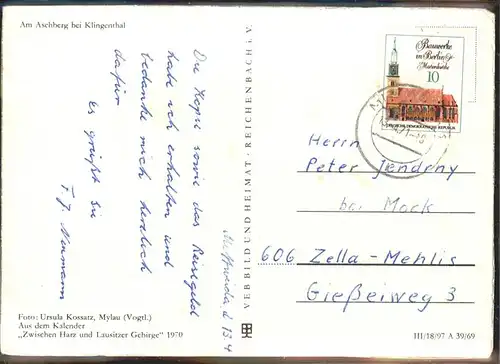 Am Aschberg bei Klingenthal
Die Kopie sowie das Reisegeld
habe ich erhalten und
bedanke mich herzlich
dafür
Es grüßt Sie
F. J. Neumann
d. 13.4
Foto: Ursula Kossatz, Mylau (Vogtl.)
Aus dem Kalender
„Zwischen Harz und Lausitzer Gebirge“ 1970
VEB BILD UND HEIMAT · REICHENBACH i. V.
Bauwerke
in Berlin
Marienkirche
10
DEUTSCHE DEMOKRATISCHE REPUBLIK
Herrn
Peter Jendrny
bei Mock
606 Zella-Mehlis
Gießeiweg 3
III/18/97 A 39/69